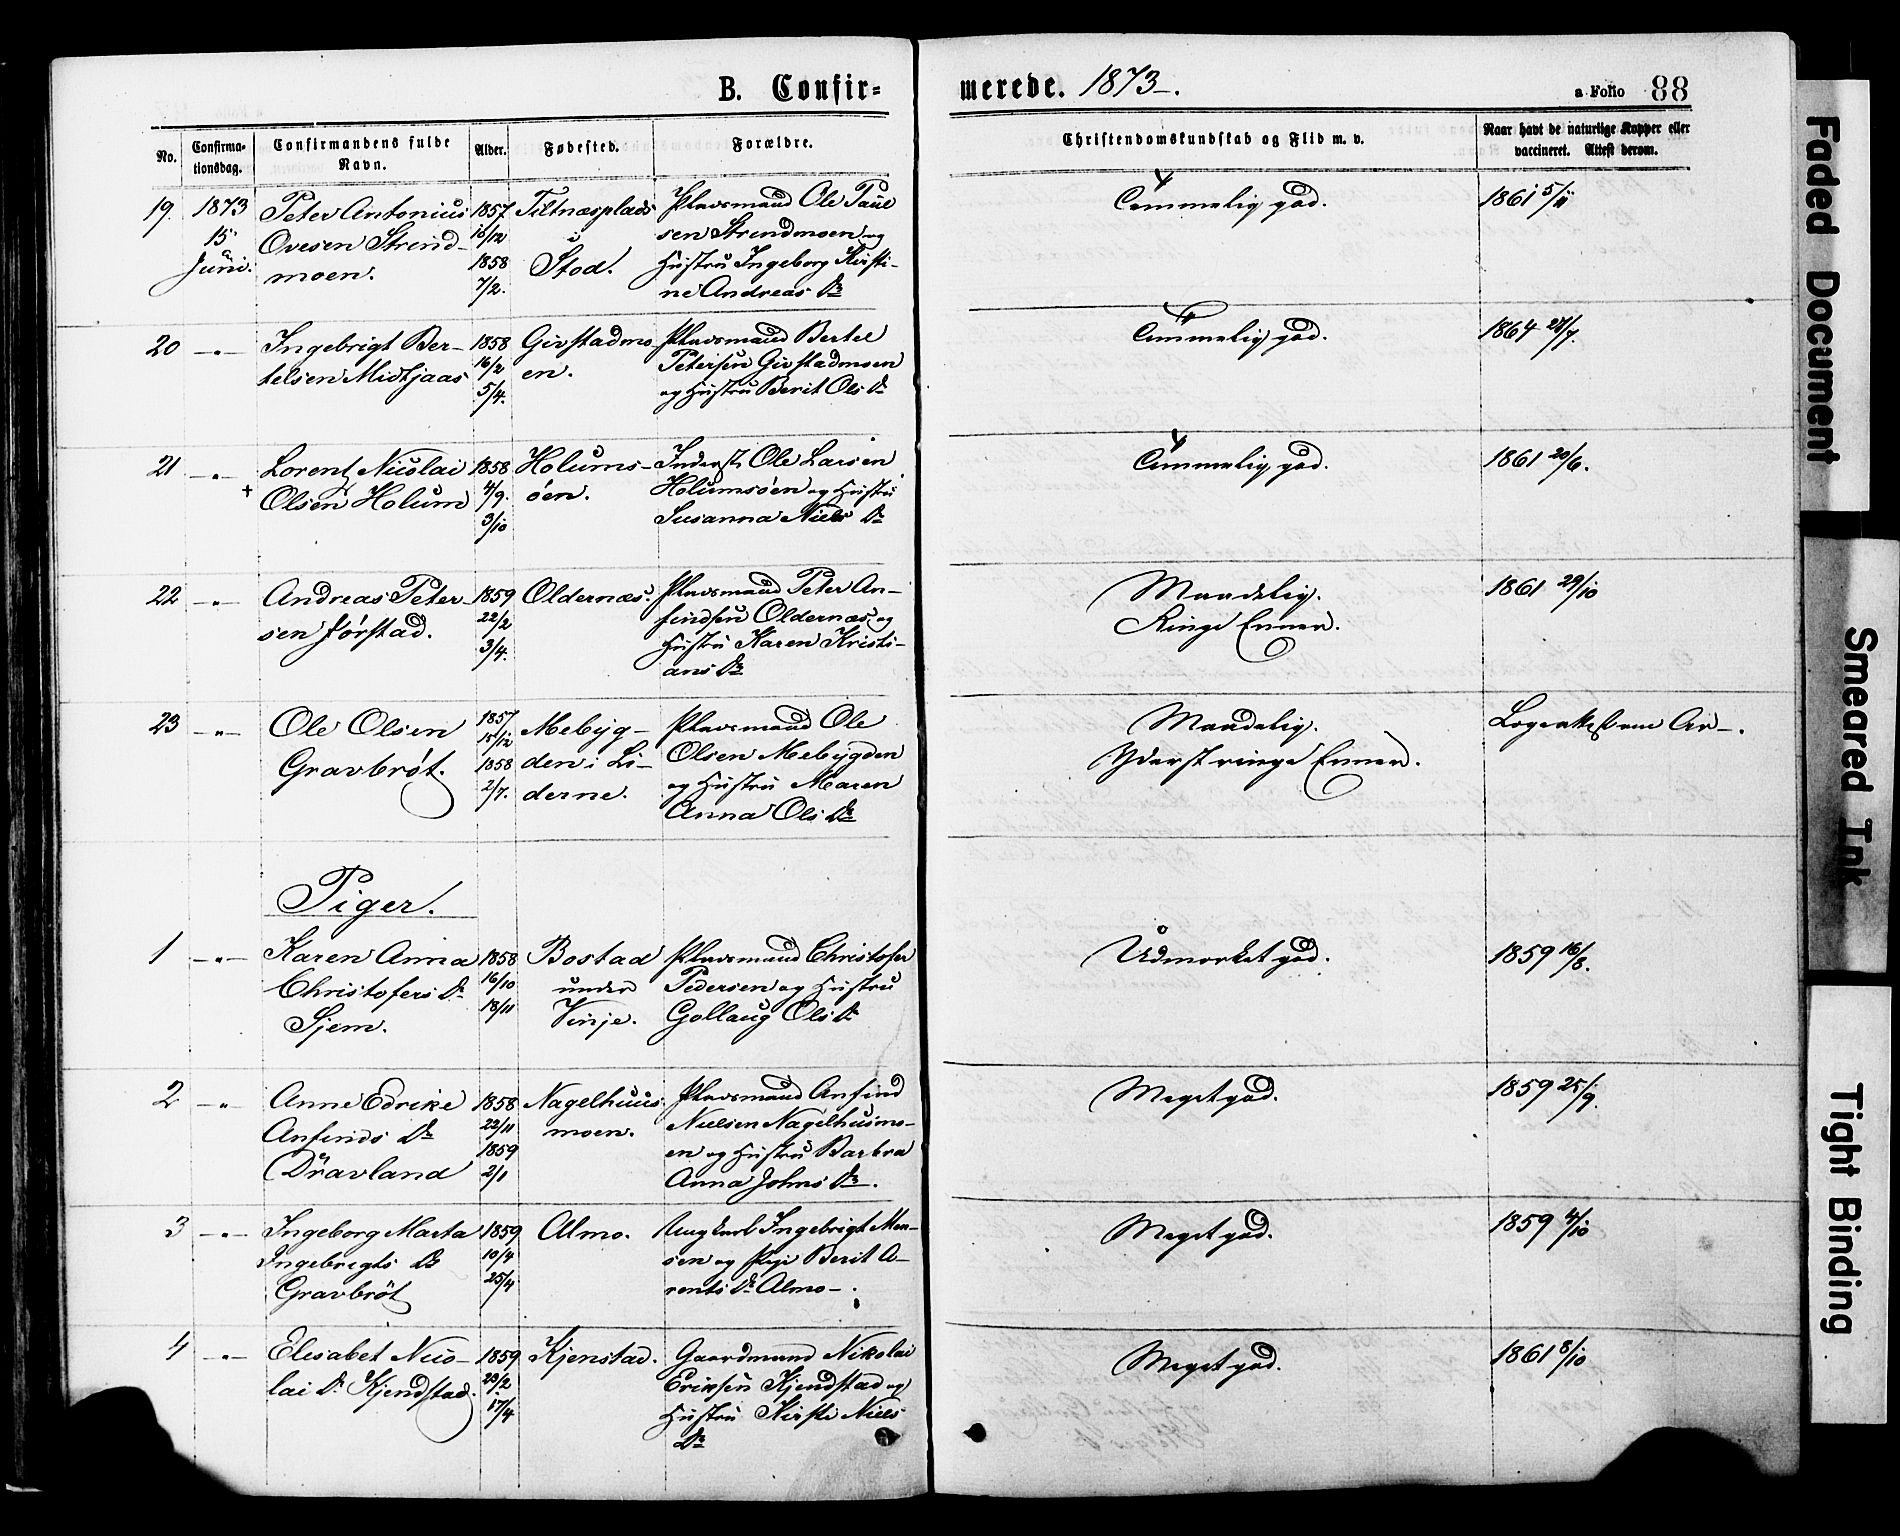 B. Confir=
merede. 1873.
a Folio 88
No.
Confirma-
tionsdag.
Confirmandens fulde
Navn.
Alder.
Fødested.
Forældre.
Christendomskundskab og Flid m. v.
Naar havt de naturlige Kopper eller
vaccineret. Attest derom.
19. 1873
15
Juni.
Peter Antonius
Ovesen Strind-
moen.
1857
16/12
1858
7/2.
Tiltnæsplads
i
Stod.
Pladsmand Ole Paul
sen Strindmoen og
Hustru Ingeborg Kirsti-
ne Andreas Dr
Temmelig god.
1861 5/11
20 -"-
Ingebrigt Ber-
telsen Midtjaas
1858
16/2
5/4.
Givstadmo-
en.
Pladsmand Bertel
Petersen Givstadmoen
og Hustru Berit Ols Dr
Temmelig god.
1864 28/7.
21 -"-
Lorentz Nicolai
Olsen Holum
+
1858
4/9.
3/10
Holums-
øen.
Inderst Ole Larsen
Holumsøen og Hustru
Susanna Niels Dr
Temmelig god.
1861 20/6.
22 -"-
Andreas Peter-
sen Jørstad.
1859
22/2
3/4.
Oldernæs.
Pladsmand Peter An-
findsen Oldernæs og
Hustru Karen Kristi-
ans Dr
Maadelig.
Ringe Evner.
1861 29/10
23 -"-
Ole Olsen
Gravbrøt.
1857
15/12
1858
2/7.
Mebyg-
den i Li-
derne.
Pladsmand Ole
Olsen Mebygden
og Hustru Maren
Anna Ols Dr
Maadelig.
Yderst ringe Evner.
Piger.
1 -"-
Karen Anna
Christofers Dr
Sjem.
1858
16/10
18/11
Bostad
under
Vinje.
Pladsmand Christofer
Pedersen og Hustru
Gollaug Ols Dr
Udmærket god.
1859 16/8.
2 -"-
Anne Edrike
Anfinds Dr
Dravland
1858
22/11
1859
2/1
Nagelhuus
moen.
Pladsmand Anfind
Nielsen Nagelhusmo-
en og Hustru Barbra
Anna Johns Dr.
Meget god.
1859 25/9.
3 -"-
Ingeborg Marta
Ingebrigts Dr
Gravbrøt
1859
10/4
25/4
Almo.
Ungkarl Ingebrigt Men-
sen og Pige Berit A-
rents Dr Almo-.
Meget god.
1859 4/10
4 -"-
Elisabet Nico-
lai Dr Kjendstad.
1859
23/2
17/4
Kjenstad.
Gaardmand Nikolai
Eriksen Kjendstad og
Hustru Kirsti Niels
Dr
Meget god.
1861 8/10
Faded Document
Smeared Ink
Tight Binding